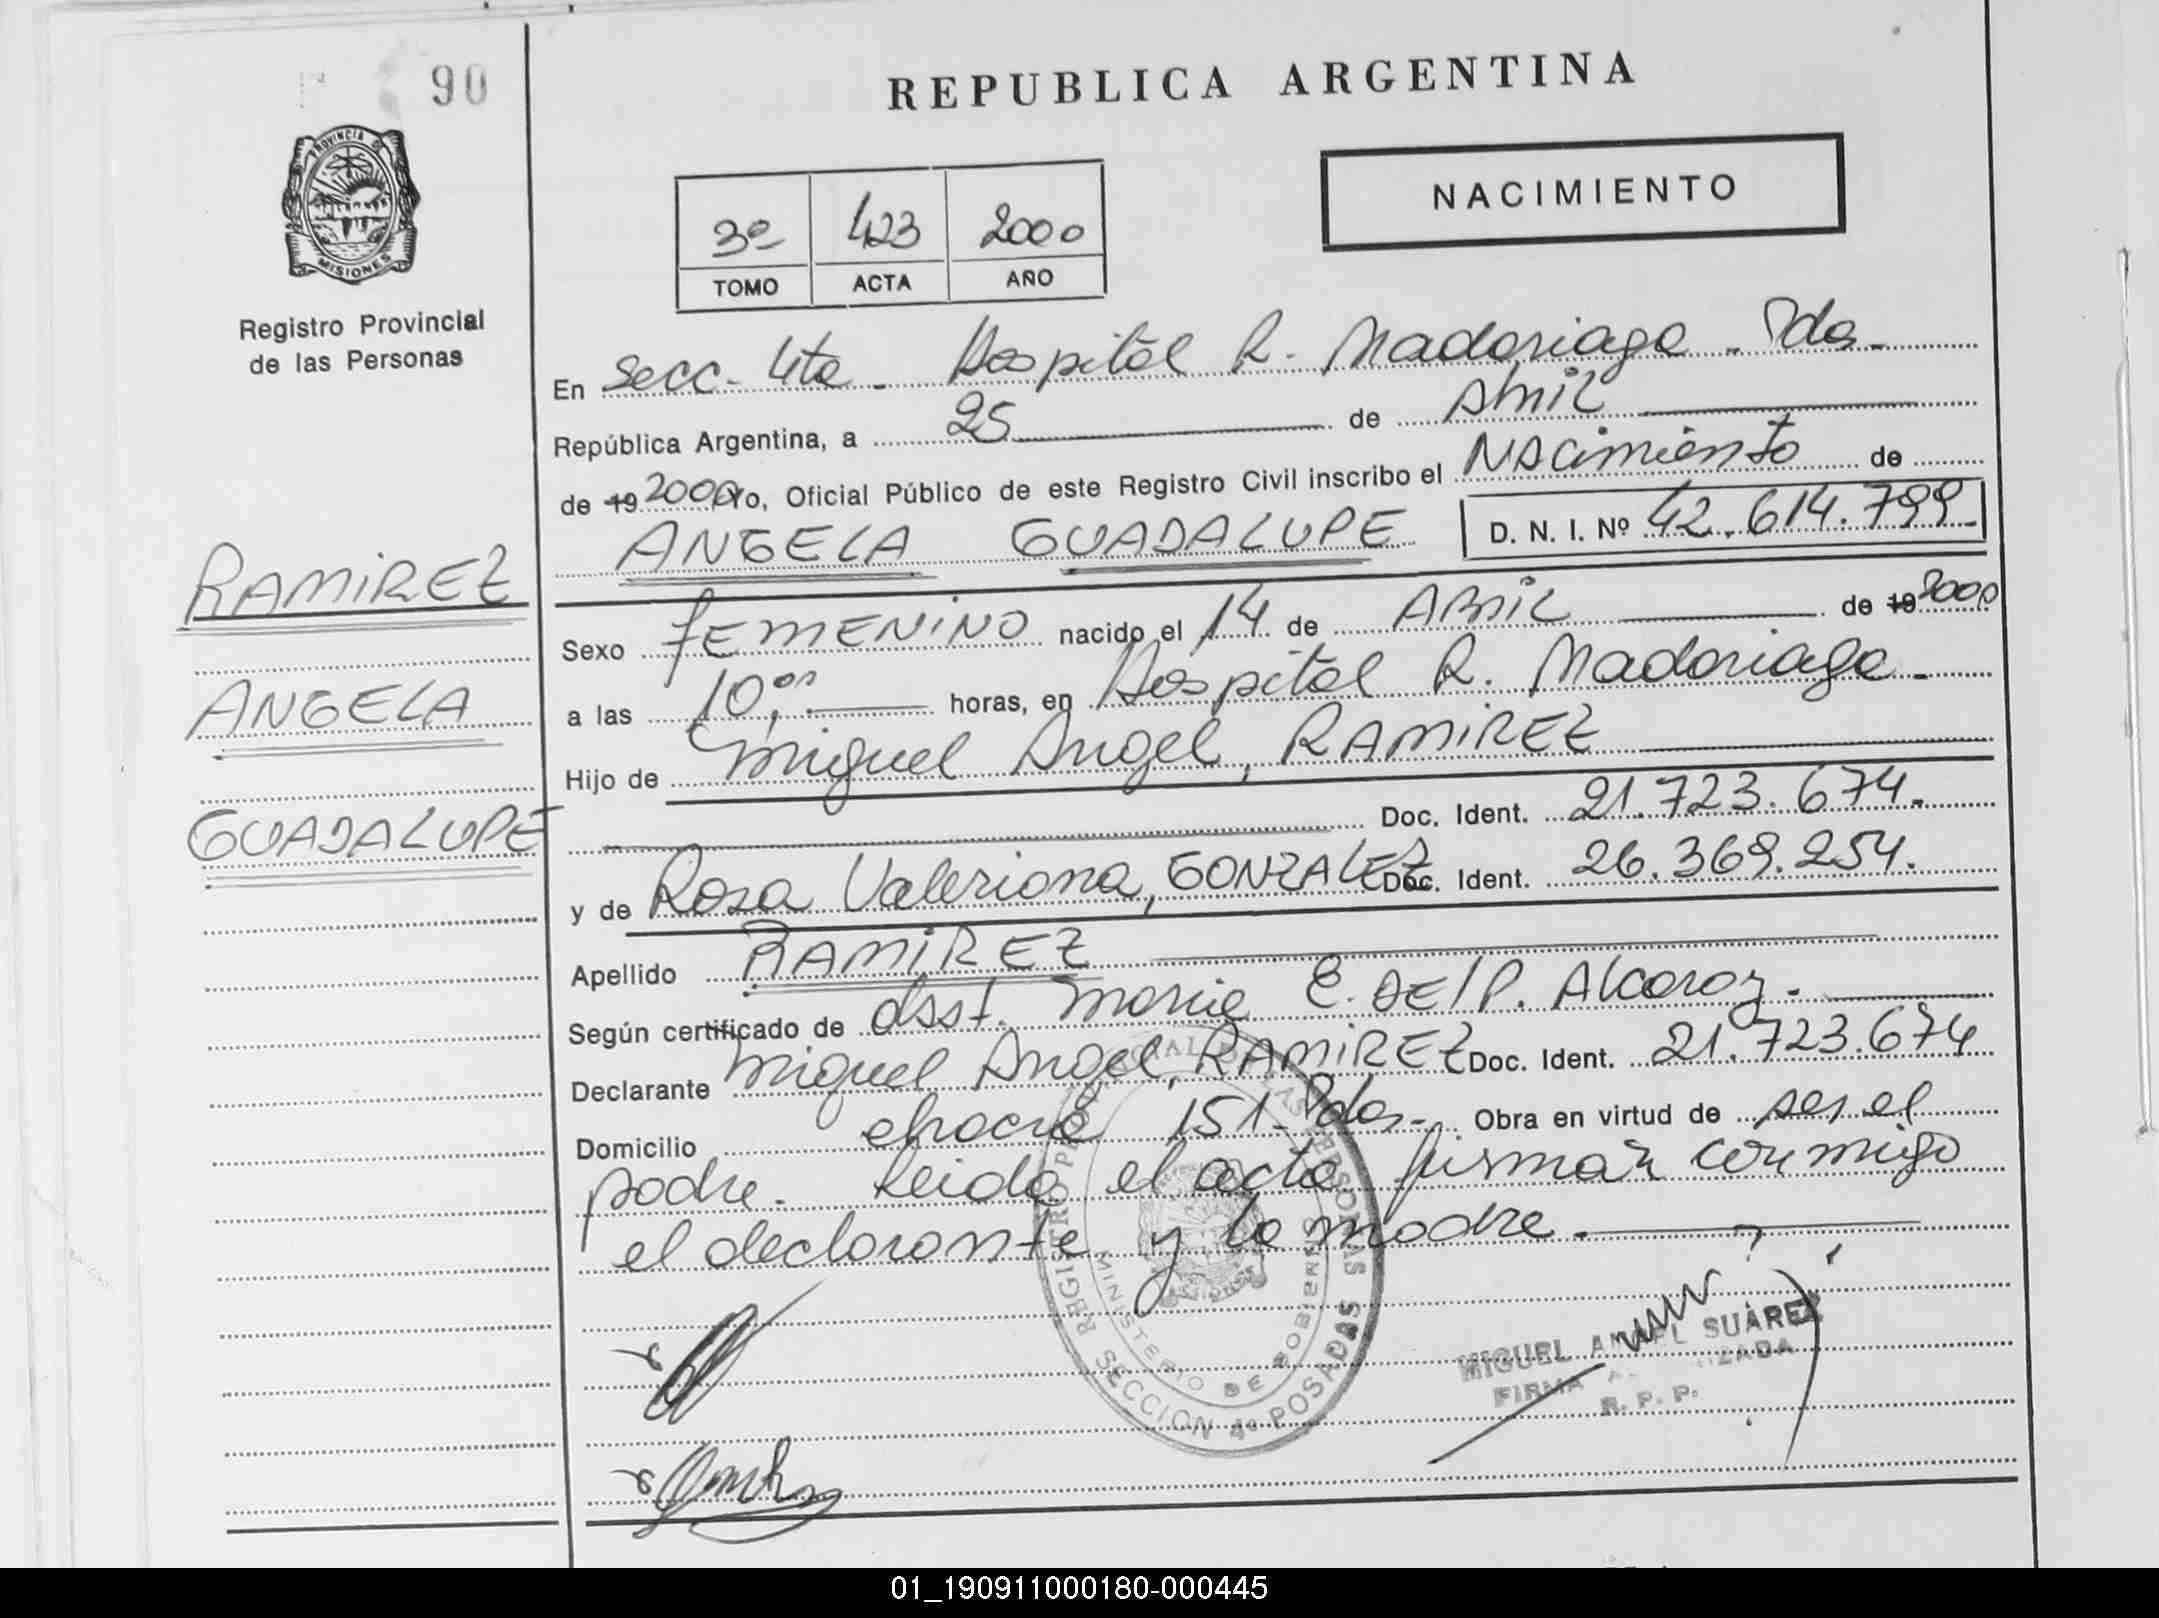 90
PROVINCIA DE
MISIONES
Registro Provincial
de las Personas
REPUBLICA ARGENTINA
NACIMIENTO
3º 423 2000
TOMO ACTA AÑO
En Secc. 4ta - Hospital R. Madariaga - Pdas -
República Argentina, a 25 de Abril
de 19 2000 Yo, Oficial Público de este Registro Civil inscribo el Nacimiento de
ANGELA GUADALUPE D. N. I. Nº 42.614.799
RAMIREZ
ANGELA
GUADALUPE
Sexo FEMENINO nacido el 14 de ABRIL de 19 2000
a las 10,00 horas, en Hospital R. Madariaga -
Hijo de Miguel Angel, RAMIREZ
Doc. Ident. 21.723.674.
y de Rosa Valeriana, GONZALEZ Doc. Ident. 26.369.254.
Apellido RAMIREZ
Según certificado de Asst. Maria E. DEL P. Alcaraz.
Declarante Miguel Angel, RAMIREZ Doc. Ident. 21.723.674
Domicilio 151 - Pdas - Obra en virtud de ser el
padre. Leida el acta firman conmigo
el declarante y la madre.
REGISTRO PROVINCIAL DE LAS PERSONAS
MINISTERIO DE GOBIERNO
SECCION 4º POSADAS
MIGUEL ANGEL SUÁREZ
FIRMA
R. P. P.
01_190911000180-000445